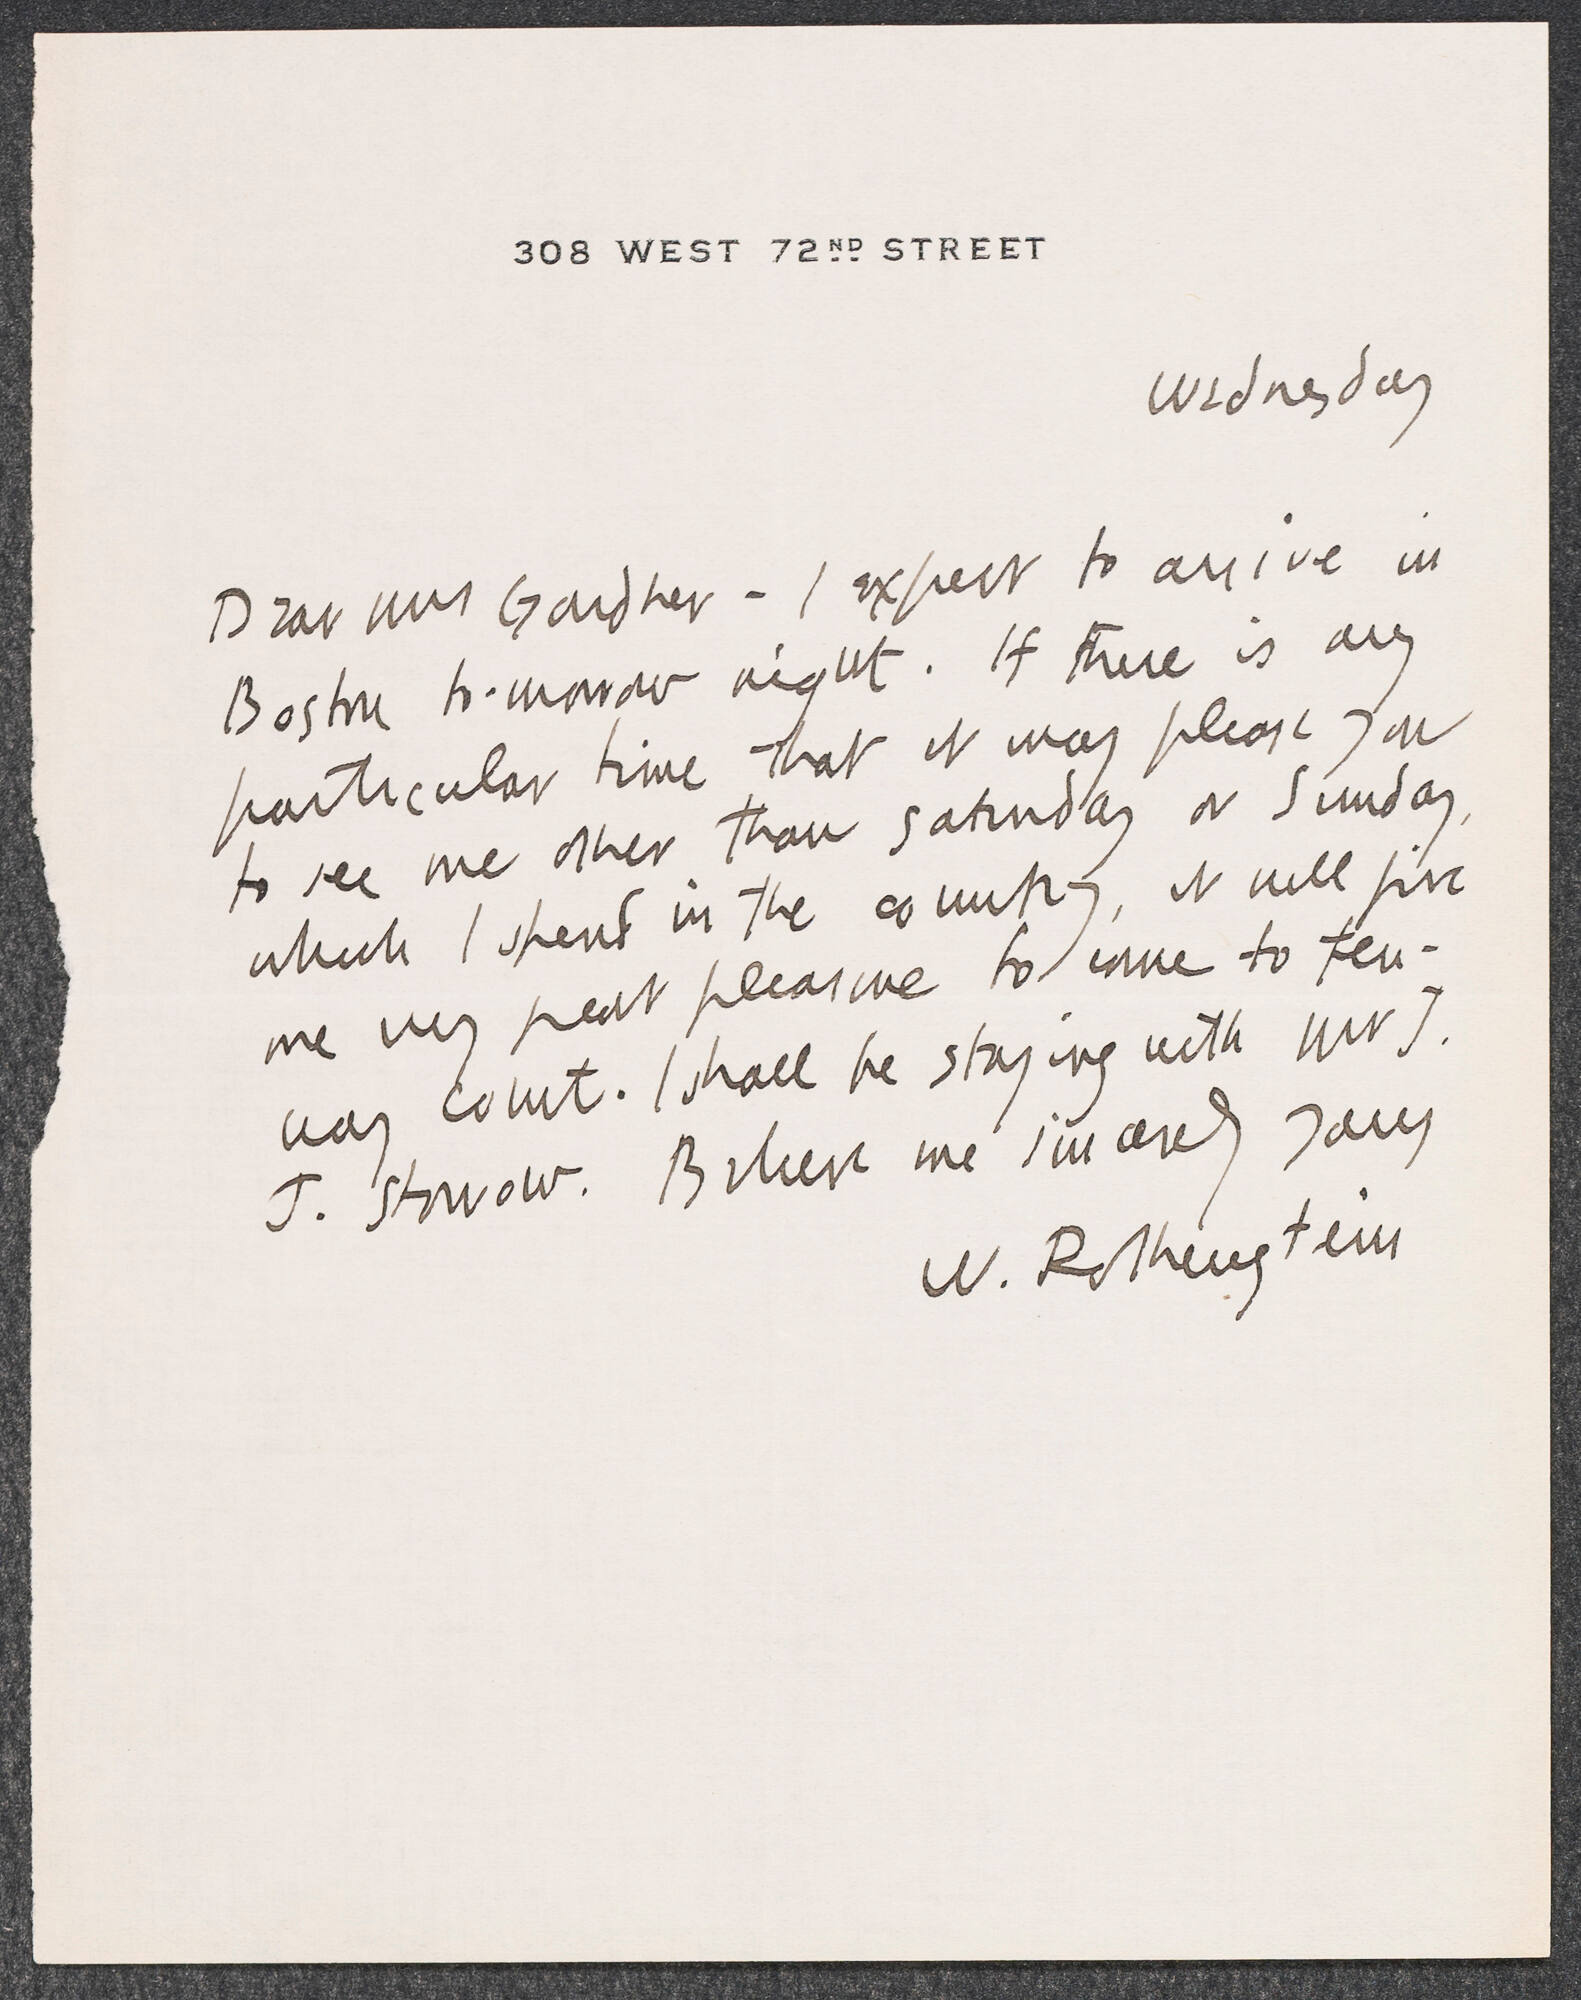 308 WEST 72ND STREET
Wednesday
Dear Mrs Gardner - I expect to arrive in
Boston to-morrow night. If there is any
particular time that it may please you
to see me other than Saturday or Sunday,
which I spend in the country, it will give
me very great pleasure to come to Fen-
way Court. I shall be staying with Mr J.
J. Storrow. Believe me sincerely yours
W. Rothenstein